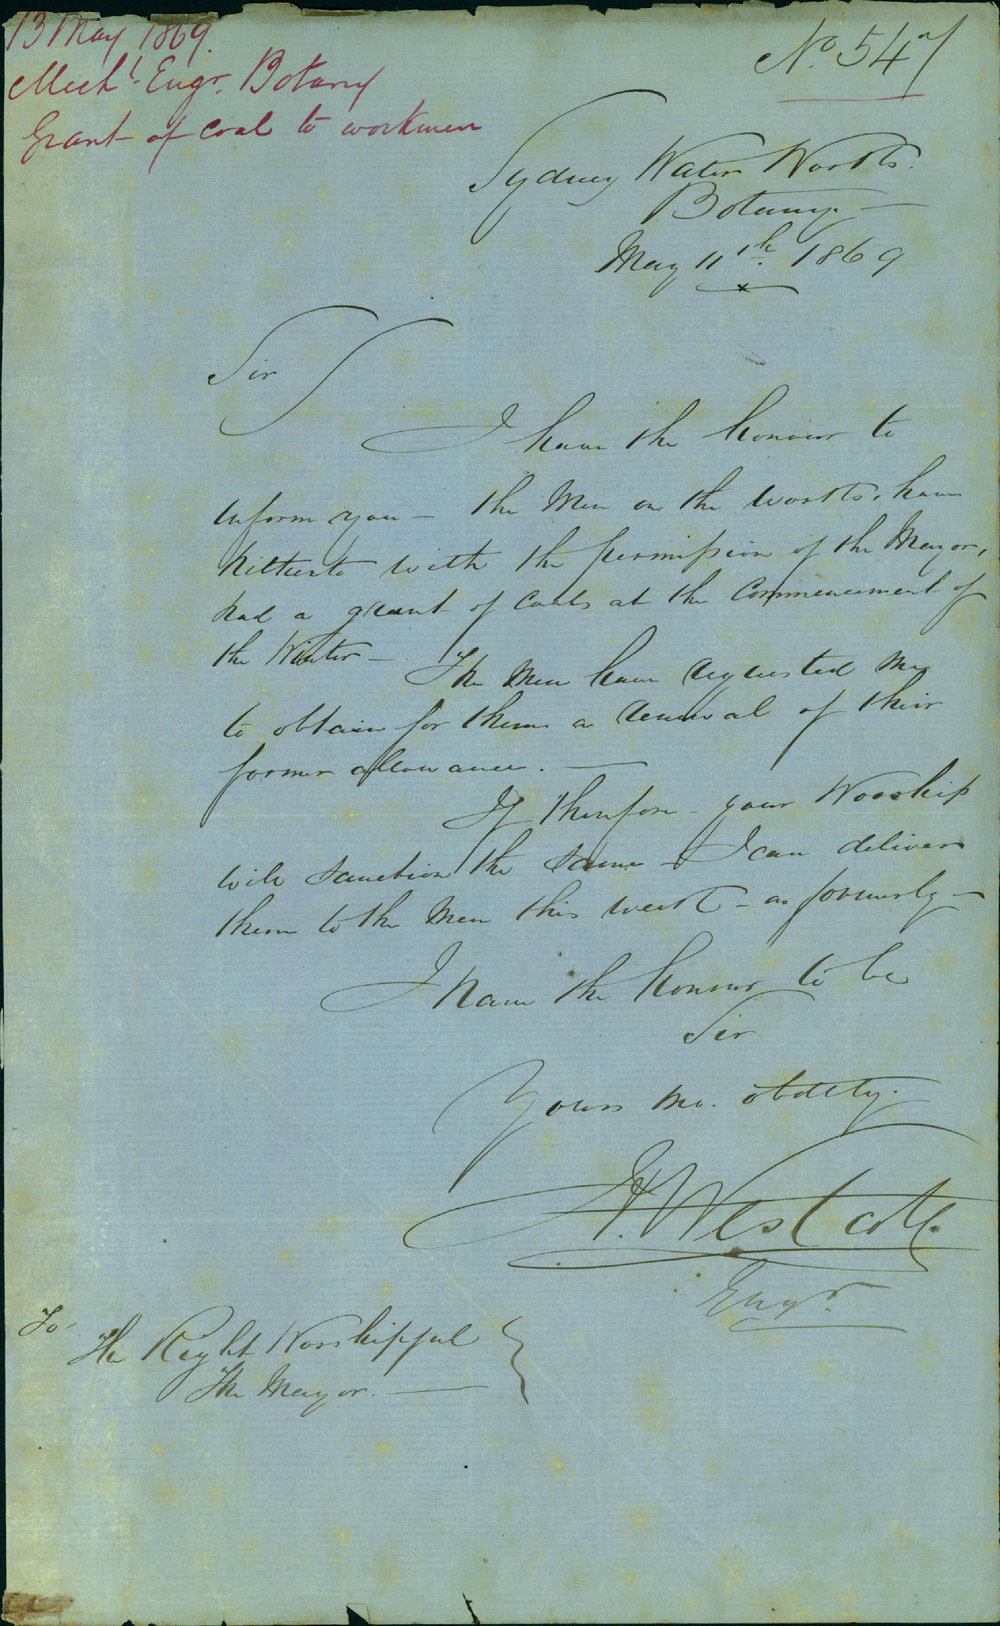 13 May 1869.
Mechl. Engr. Botany
Grant of coal to workmen
No. 547
Sydney Water Works.
Botany.—
May 11th. 1869
Sir
I have the honour to
inform you — the Men on the works, have
hitherto with the permission of the Mayor,
had a grant of coals at the commencement of
the Winter — The Men have requested me
to obtain for them a renewal of their
former allowance. —
If therefore — your Worship
will sanction the same — I can deliver
them to the Men this week — as formerly —
I have the honour to be
Sir
Yours mo. obdtly.
Westcott.
Engr.
To
The Right Worshipful
The Mayor. —